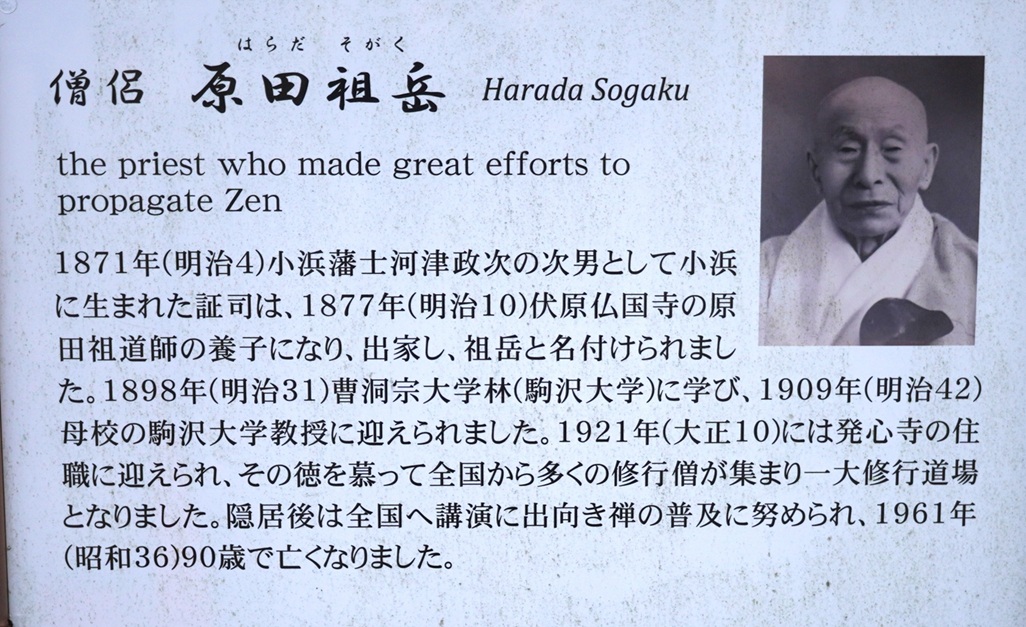 はらだ そがく
僧侶 原田祖岳 Harada Sogaku
the priest who made great efforts to
propagate Zen
1871年(明治4)小浜藩士河津政次の次男として小浜
に生まれた証司は、1877年(明治10)伏原仏国寺の原
田祖道師の養子になり、出家し、祖岳と名付けられまし
た。1898年(明治31)曹洞宗大学林(駒沢大学)に学び、1909年(明治42)
母校の駒沢大学教授に迎えられました。1921年(大正10)には発心寺の住
職に迎えられ、その徳を慕って全国から多くの修行僧が集まり一大修行道場
となりました。隠居後は全国へ講演に出向き禅の普及に努められ、1961年
(昭和36)90歳で亡くなりました。